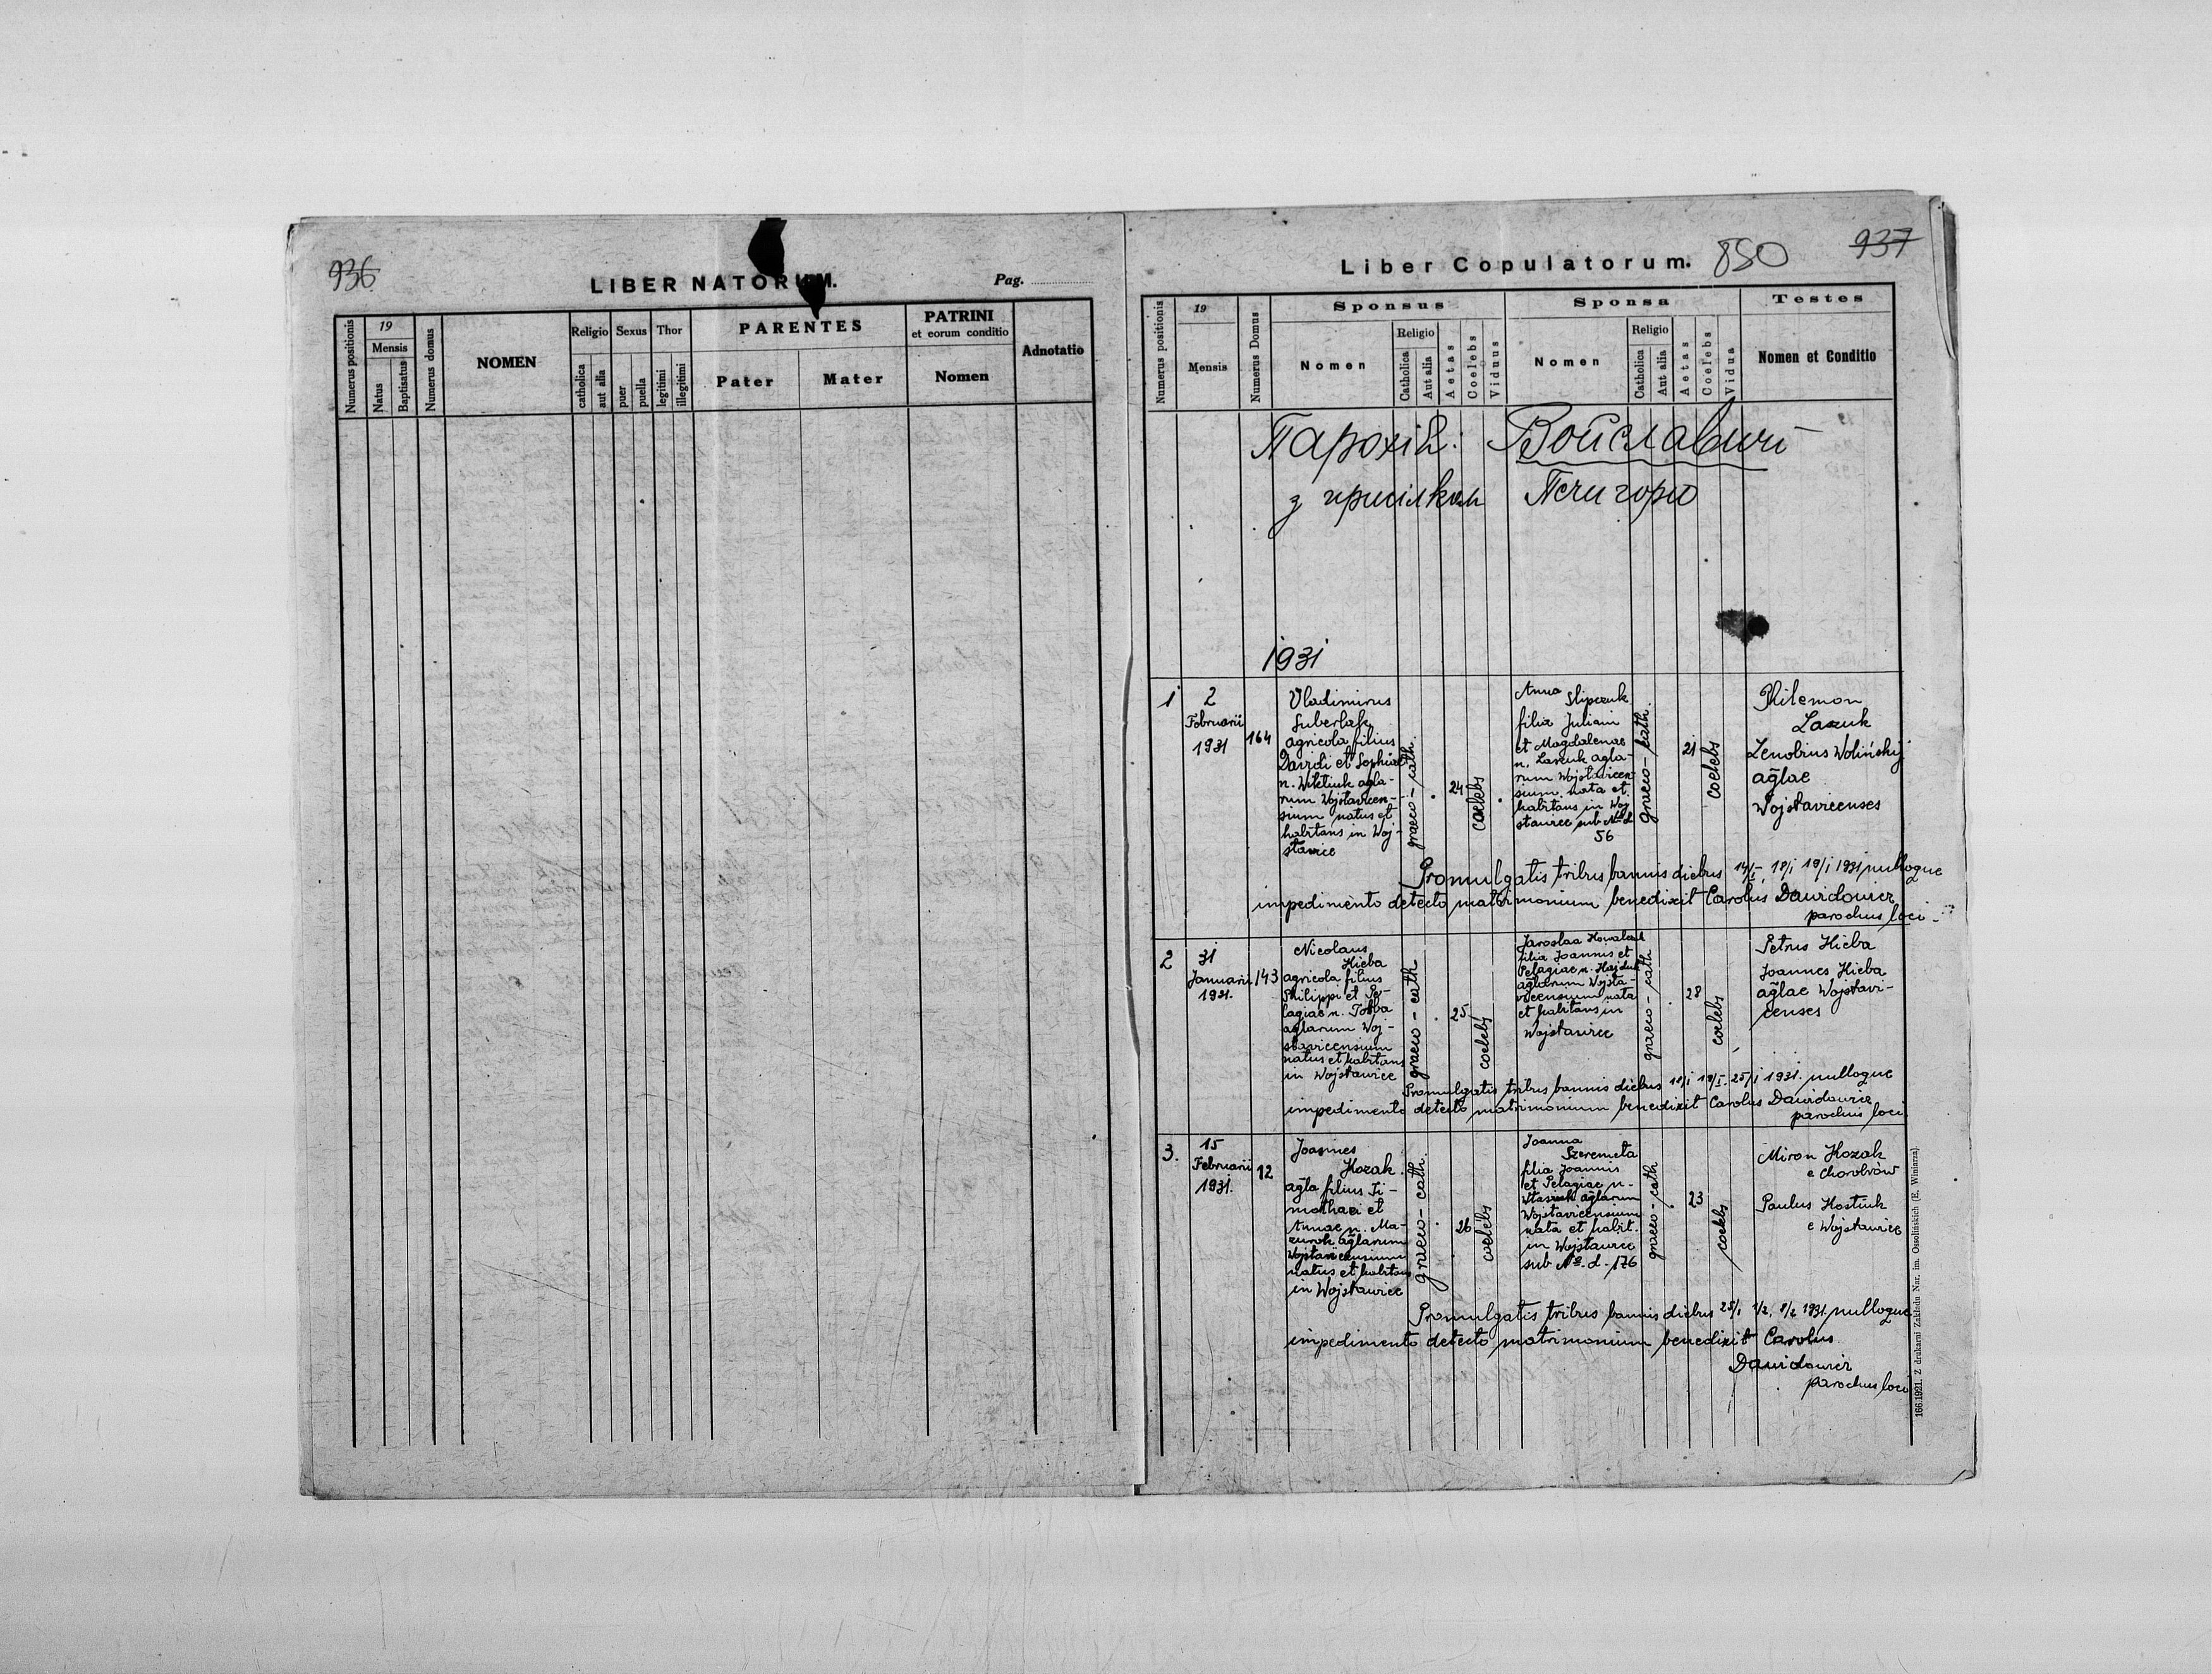 936
LIBER NATORUM.
Pag.
Numerus positionis
19
Mensis
Natus
Baptisatus
Numerus domus
NOMEN
Religio
catholica
aut alia
Sexus
puer
puella
Thor
legitimi
illegitimi
PARENTES
Pater
Mater
PATRINI
et eorum conditio
Nomen
Adnotatio
Liber Copulatorum.
850
937
Numerus positionis
19
Mensis
Numerus Domus
Sponsus
Nomen
Religio
Catholica
Aut alia
Aetas
Coelebs
Viduus
Sponsa
Nomen
Religio
Catholica
Aut alia
Aetas
Coelebs
Vidua
Testes
Nomen et Conditio
Парохія: Войславичі
з присілком Печигори
1931
1
2
Februarii
1931
164
Vladimirus
Suberlak
agricola filius
Davidi et Sophiae
n. Witiuk agla-
rum Wojsławicen-
sium natus et
habitans in Woj-
sławice
graeco-cath.
24
coelebs
Anna Slipczuk
filia Juliani
et Magdalenae
n. Laszuk agla-
rum Wojsławicen
sium nata et
habitans in Woj
sławice sub No d
56
graeco-cath.
21
coelebs
Philemon
Laszuk
Zenobius Woliński
aglae
Wojsławicenses
Promulgatis tribus bannis diebus 14/I 18/I 19/I 1931 nulloque
impedimento detecto matrimonium benedixit Carolus Dawidowicz
parochus loci
2
31
Januarii
1931.
143
Nicolaus
Hieba
agricola filius
Philippi et Pe-
lagiae n. Torba
aglarum Woj-
sławicensium
natus et habitans
in Wojsławice
graeco-cath
25
coelebs
Jaroslaa Kowalczuk
filia Joannis et
Pelagiae n. Hajduk
aglarum Wojsła-
vicensium nata
et habitans in
Wojsławice
graeco-cath
28
coelebs
Petrus Hieba
Joannes Hieba
aglae Wojsławi-
censes
Promulgatis tribus bannis diebus 18/I 19/I 25/I 1931. nulloque
impedimento detecto matrimonium benedixit Carolus Dawidowicz
parochus loci
3.
15
Februarii
1931.
12
Joannes
Kozak
agla filius Ti-
mothaei et
Annae n. Ma-
zurok aglarum
Wojsławicensium
natus et habitans
in Wojsławice
graeco-cath.
26
coelebs
Joanna
Szeremeta
filia Joannis
et Pelagiae n.
aglarum
Wojsławicensium
nata et habit.
in Wojsławice
sub No. d. 176
graeco-cath
23
coelebs
Miron Kozak
e Chorobrów
Paulus Kostiuk
e Wojsławice
Promulgatis tribus bannis diebus 25/1 1/2 8/2 1931. nulloque
impedimento detecto matrimonium benedixit Carolus
Dawidowicz
parochus loci
166.1921. Z drukarni Zakładu Nar. im. Ossolińskich (E. Winiarza).